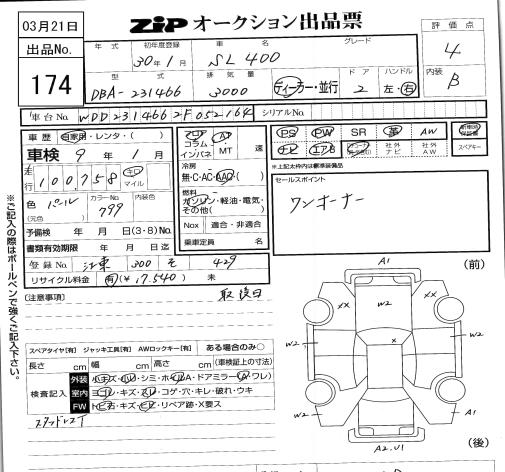 03月21日
ZIPオークション出品票
出品No.
174
評価点
4
内装
B
年式
初年度登録
30年1月
車名
SL400
グレード
型式
DBA-231466
排気量
3000
ディーラー・並行
ドア
2
ハンドル
左・右
車台No.
WDD2314662F052164
シリアルNo.
車歴
自家用・レンタ・( )
車検 9年 1月
走行
100,758
キロ
マイル
色
パール
(元色)
カラーNo.
799
内装色
予備検 年 月 日(3・8)No.
書類有効期限 年 月 日迄
登録No.
江東 300 そ 429
リサイクル料金 有(¥17,540) 未
フロア
コラム
インパネ
AT
MT
速
冷房
無・C・AC・AAC・( )
燃料
ガソリン・軽油・電気・
その他( )
Nox 適合・非適合
乗車定員 名
PS
PW
SR
革
AW
ナビ
エアB
社外ナビ
社外AW
新車時保証書
スペアキー
※上記太枠内は標準装備品
セールスポイント
ワンオーナー
[注意事項]
取説日
スペアタイヤ[有] ジャッキ工具[有] AWロックキー[有] ある場合のみ○
長さ cm 幅 cm 高さ cm (車検証上の寸法)
検査記入
外装 小キズ・小凹・シミ・ホイルA・ドアミラー(A・ワレ)
室内 ヨゴレ・キズ・スレ・コゲ・穴・キレ・破れ・ウキ
FW トビ石・キズ・ヒビ・リペア跡・X要ス
※ご記入の際はボールペンで強くご記入下さい。
A1
(前)
XX
W2
XX
W2
W2
x
W2
W2
A1
A2.U1
(後)